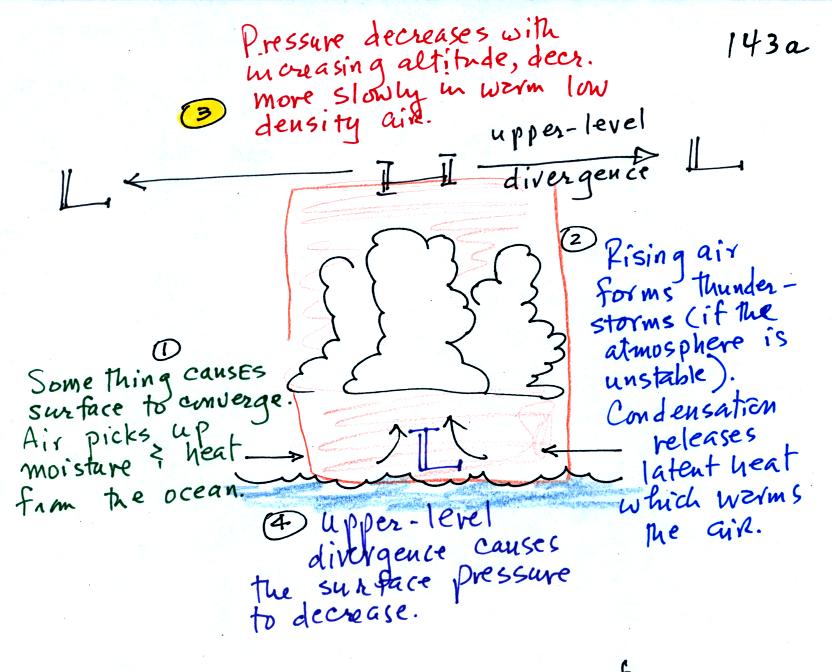 143a
Pressure decreases with
increasing altitude, decr.
more slowly in warm low
density air.
3
upper-level
divergence
L
H
L
2
Rising air
forms thunder-
storms (if the
atmosphere is
unstable).
Condensation
releases
latent heat
which warms
the air.
1
Some thing causes
surface to converge.
Air picks up
moisture & heat
from the ocean.
L
4 upper-level
divergence causes
the surface pressure
to decrease.